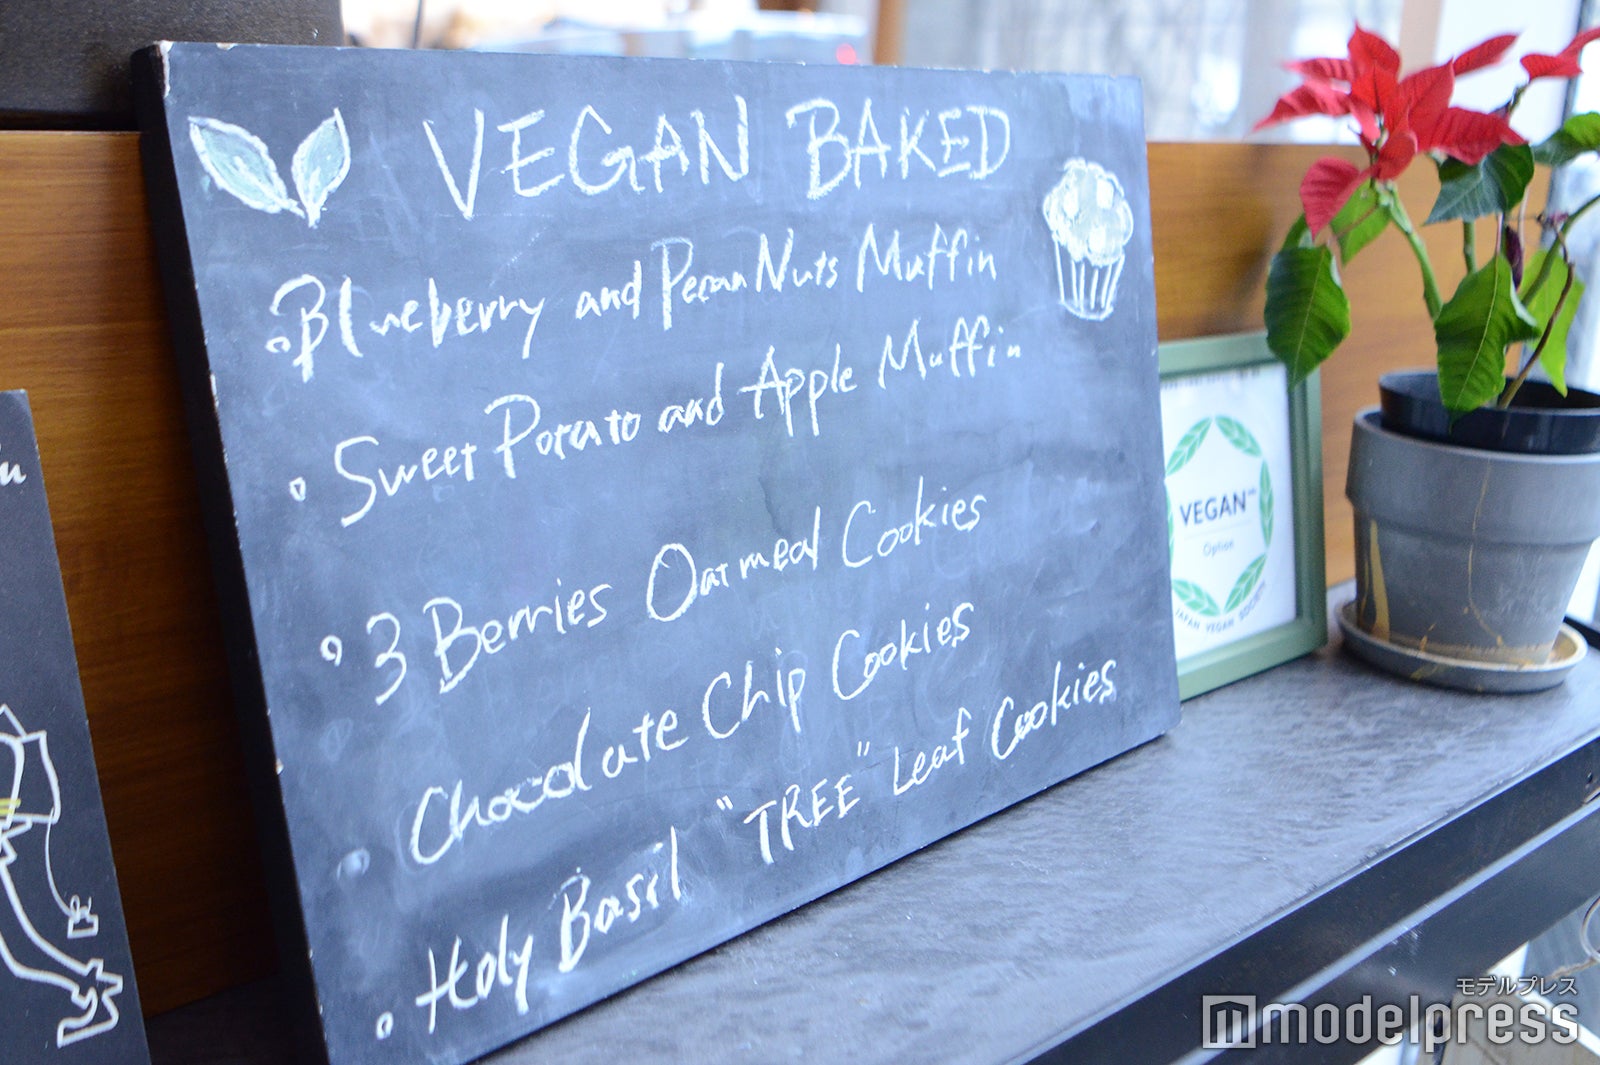 VEGAN BAKED
Blueberry and Pecan Nuts Muffin
Sweet Potato and Apple Muffin
3 Berries Oatmeal Cookies
Chocolate Chip Cookies
Holy Basil "TREE" Leaf Cookies
VEGAN
Option
JAPAN VEGAN SOCIETY
モデルプレス
modelpress